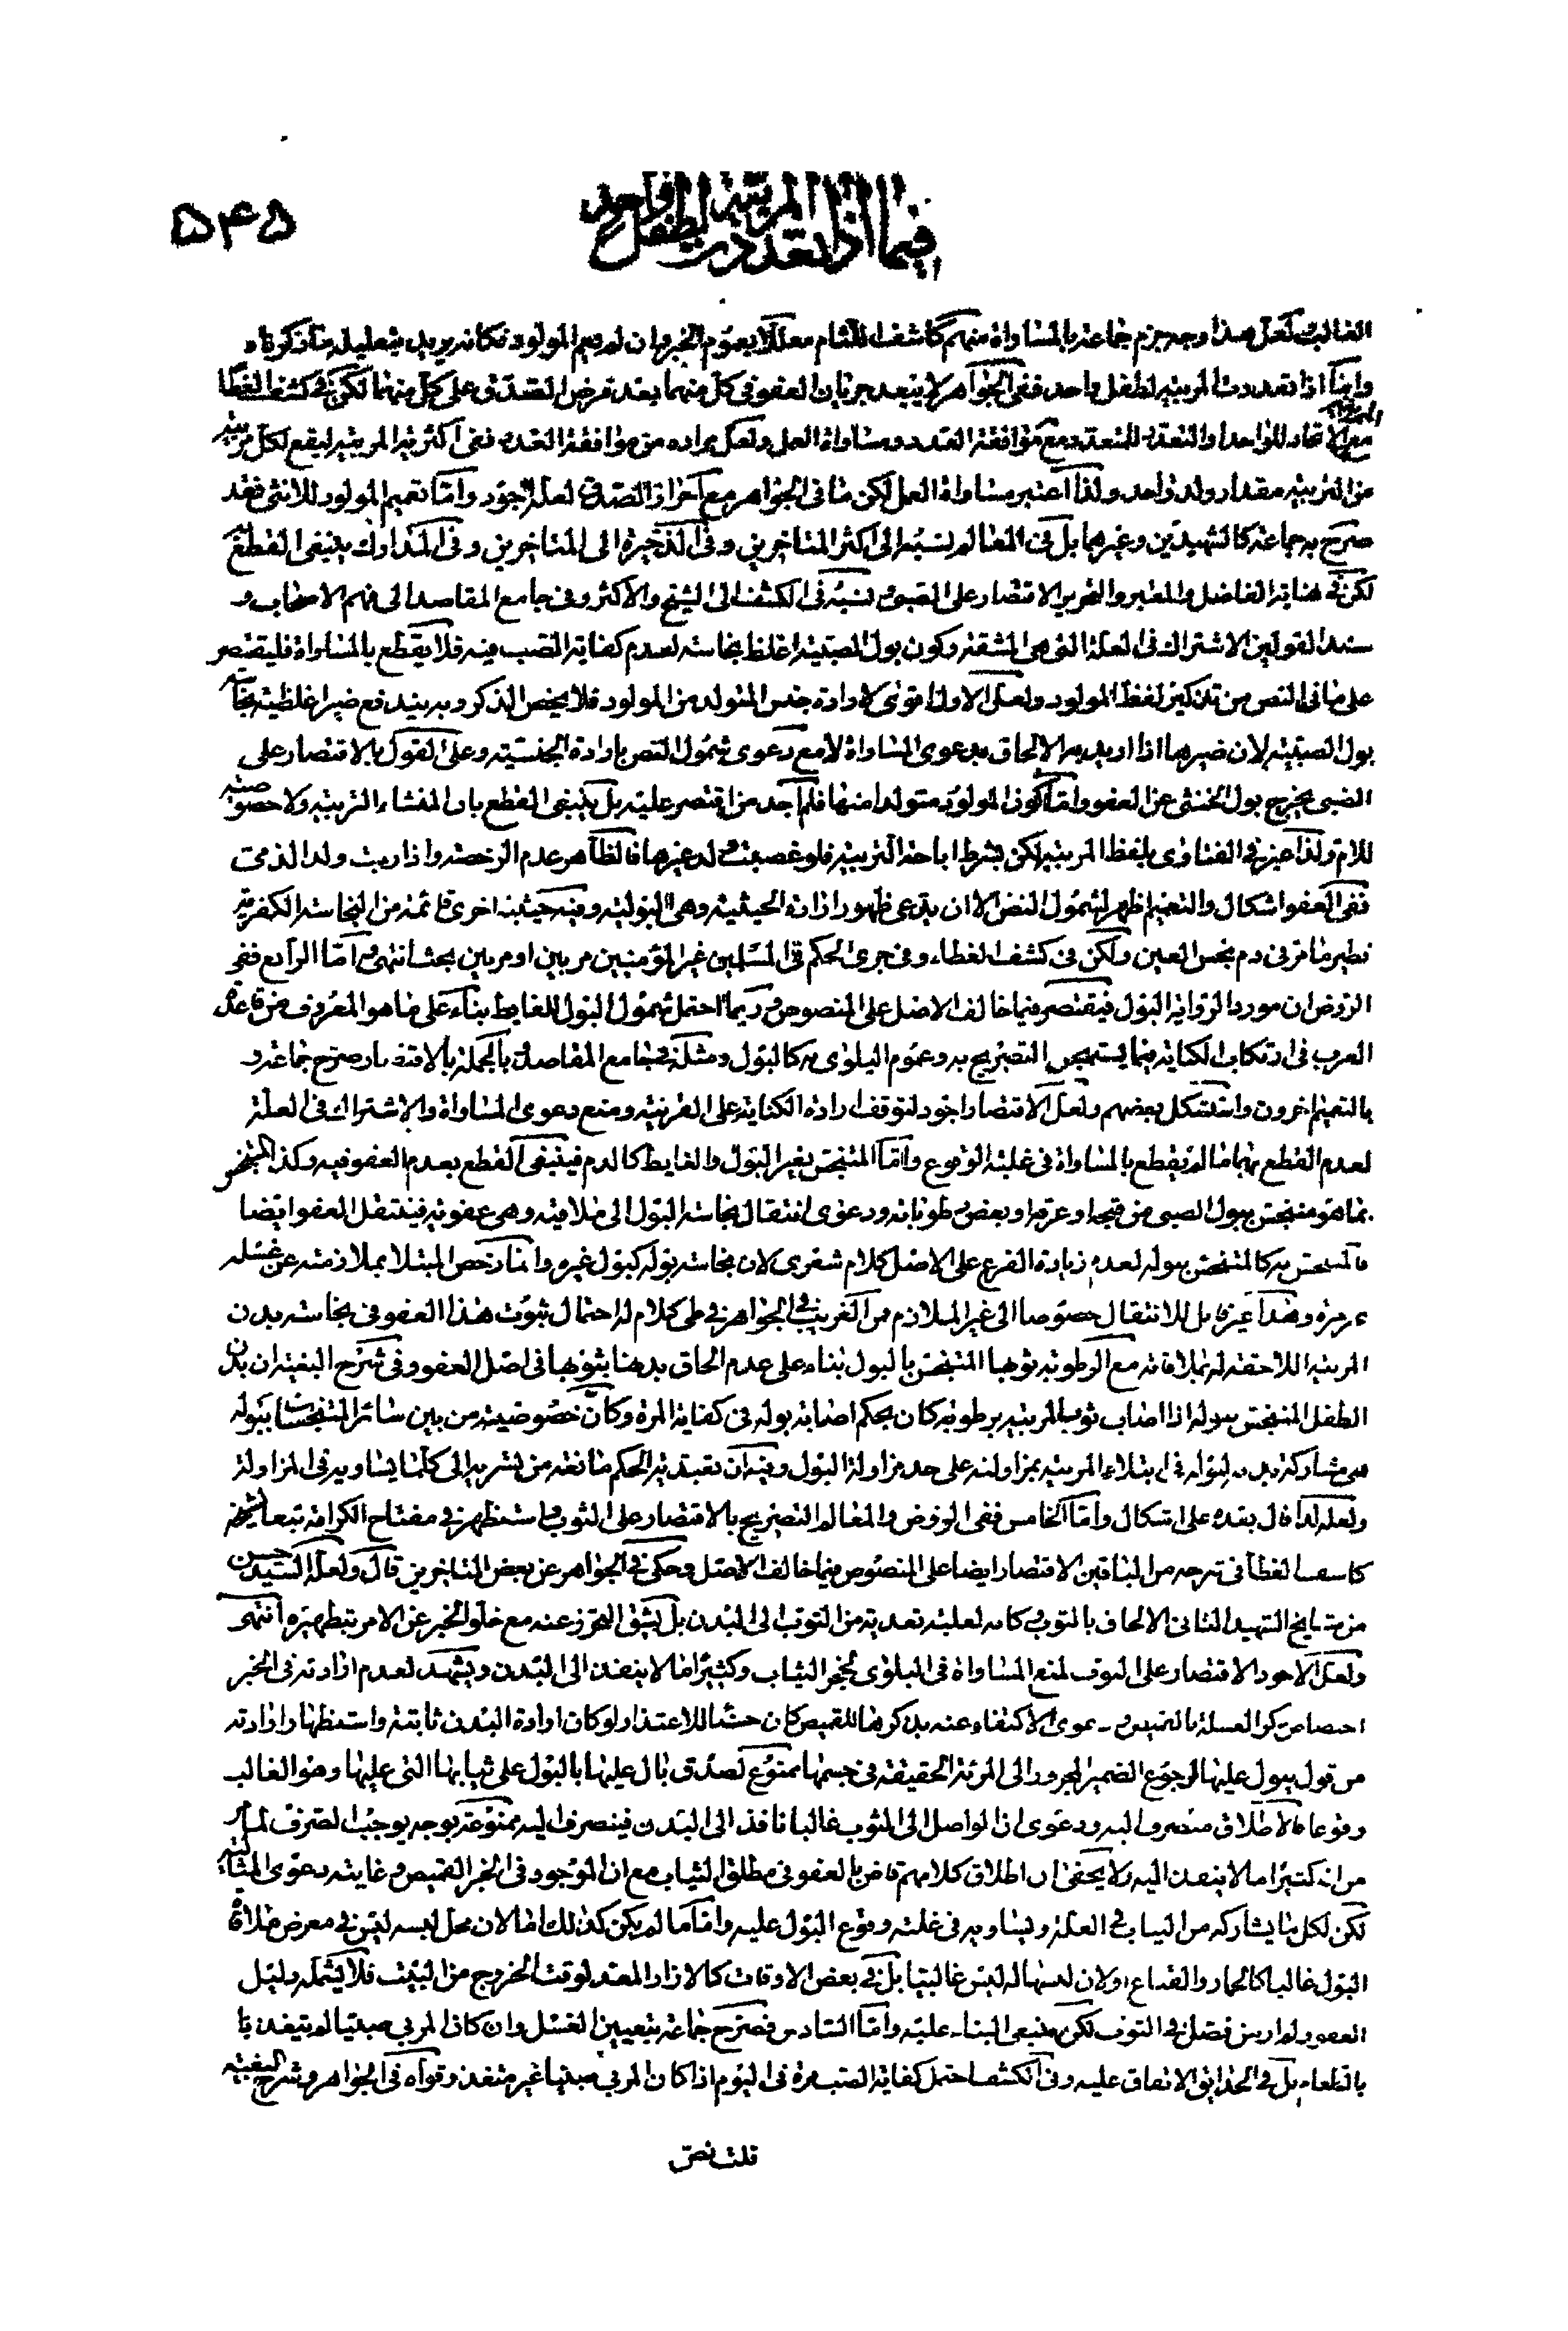 فيما اذا تعددت المربية لطفل واحد
۵۴۵
الغالب لعل هذا وجه جزم جماعة بالمساواة منهم كاشف اللثام معللا بعموم الخبر وان لم يعم المولود فكانه يريد بتعليله ما ذكرناه
وامّا اذا تعددت المربية لطفل واحد ففي الجواهر لا يبعد جريان العفو في كل منهما بعد فرض الصدق على كل منهما لكن في كشف الغطا
مع الاتحاد للواحد او التعدد للمتعدد مع موافقة العدد ومساواة العمل ولعل مراده من موافقة العدد نفى اكثرية المربية ليقع لكل مربية
من التربية مقدار ولد واحد ولذا اعتبر مساواة العمل لكن ما في الجواهر مع احراز الصدق لعله اجود وامّا تعميم المولود للانثى فقد
صرح به جماعة كالشهيدين وغيرهما بل في المعالم نسبه الى اكثر المتاخرين وفي الذخيرة الى المتاخرين وفي المدارك ينبغي القطع به
لكن في نهاية الفاضل والمعتبر والتحرير الاقتصار على الصبي ونسبه في الكشف الى الشيخ والاكثر وفي جامع المقاصد الى فهم الاصحاب و
سند القولين الاشتراك في العلة التي هي المشقة وكون بول الصبية اغلظ نجاسة لعدم كفاية الصب فيه فلا يقطع بالمساواة فليقتصر
على ما في النص من تذكير لفظ المولود ولعل الاول اقوى لارادة جنس المتولد من المولود فلا يخص الذكر وبه يندفع ضير اغلظية نجاسة
بول الصبية لان ضيرها اذا اريد به الالحاق بدعوى المساواة لا مع دعوى شمول النص بارادة الجنسية وعلى القول بالاقتصار على
الصبي يخرج بول الخنثى عن العفو وامّا كون المولود متولدا منها فلم اجد من اقتصر عليه بل ينبغي القطع بان المنشاء التربية ولا خصوصية
للام ولذا عبر في الفتاوى بلفظ المربية لكن بشرط اباحة التربية فلو غصبت ولد غيرها فالظاهر عدم الرخصة واذا ربت ولد الذمي
ففي العفو اشكال والتعميم اظهر لشمول النص الا ان يدعى ظهور ارادة الحيثية وهي البولية وفيه حيثية اخرى قائمة من النجاسة الكفرية
نظير ما مر في دم نجس العين ولكن في كشف الغطاء وفي جرى الحكم في المسلمين غير المؤمنين مربين او مربين بحث انتهى وامّا الرابع ففي
الروض ان مورد الرواية البول فيقتصر فيما خالف الاصل على المنصوص وربما احتمل شمول البول للغايط بناء على ما هو المعروف من قاعدة
العرب في ارتكاب الكناية فيما يستهجن التصريح به وعموم البلوى به كالبول ومثله في جامع المقاصد بالجملة بالاقتصار صرح جماعة و
بالتعميم اخرون واستشكل بعضهم ولعل الاقتصار اجود لتوقف ارادة الكناية على القرينة ومنع دعوى المساواة والاشتراك في العلة
لعدم القطع بهما ما لم يقطع بالمساواة في غلبة الوقوع وامّا المتنجس بغير البول والغايط كالدم فينبغي القطع بعدم العفو فيه وكذا المتنجس
بما هو متنجس ببول الصبي من قيحه او عرقه او بعض رطوباته ودعوى انتقال نجاسة البول الى ملاقيه وهي عفوية فينتقل العفو ايضا
فالمتنجس به كالمتنجس ببوله لعدم زيادة الفرع على الاصل كلام شعرى لان نجاسة بوله كبول غيره وانما رخص المبتلا بملازمته عن غسله
مرة وهذا غير قابل للانتقال خصوصا الى غير الملازم ومن الغريب في الجواهر في طى كلام له احتمال ثبوت هذا العفو في نجاسة بدن
المربية اللاحقة له بملاقاته مع الرطوبة ثوبها المتنجس بالبول بناء على عدم الحاق بدنها بثوبها في اصل العفو وفي شرح البغية ان بدن
الطفل المتنجس ببوله اذا اصاب ثوب المربية برطوبة كان بحكم اصابة بوله في كفاية المرة وكان خصوصيته من بين سائر المتنجسات ببوله
هي مشاركة بدنه لبوله في ابتلاء المربية بمزاولته على حد مزاولة البول وفيه ان تعبدية الحكم مانعة من تسريه الى كلما يساويه في المزاولة
ولعله لذا قال بعده على اشكال وامّا الخامس ففي الروض والمعالم التصريح بالاقتصار على الثوب واستظهره في مفتاح الكرامة تبعا لشيخه
كاشف الغطا في شرحه من الباقين الاقتصار ايضا على المنصوص فيما خالف الاصل وحكى في الجواهر عن بعض المتاخرين قال ولعله السيد حسن
من مشايخ الشهيد الثاني الالحاق بالثوب كانه لغلبة تعديه من الثوب الى البدن بل يشق التحرز عنه مع خلو الخبر عن الامر بتطهيره انتهى
ولعل الاجود الاقتصار على الثوب لمنع المساواة في البلوى لحجر الثياب وكثيرا ما لا ينفذ الى البدن ويشهد لعدم ارادته في الخبر
اختصاص ذكر الغسلة بالقميص ودعوى الاكتفاء عنه بذكرها للقميص كان حسنا للاعتذار لو كان ارادة البدن ثابتة واستظهار ارادته
من قول يبول عليها لرجوع الضمير المجرور الى المرئة الحقيقة في جسمها ممنوع لصدق بال عليها بالبول على ثيابها التي عليها وهو الغالب
وقوعا فالاطلاق منصرف اليه ودعوى ان الواصل الى الثوب غالبا نافذ الى البدن فينصرف اليه ممنوعة بوجه يوجب الصرف لما مر
من انه كثيرا ما لا ينفذ اليه ولا يخفى ان اطلاق كلامهم قاض بالعفو في مطلق الثياب مع ان الموجود في الخبر القميص وغايته دعوى المثالية
لكن لكل ما يشاركه من الثياب في العلة ويساويه في غلبة وقوع البول عليه وامّا ما لم يكن كذلك اما لان محل لبسه ليس في معرض ملاقاة
البول غالبا كالخمار والقناع او لان لبسها له ليس غالبيا بل في بعض الاوقات كالازار المعتد لوقت الخروج من البيت فلا يشمله دليل
العفو ولم ار من فصل في الثوب لكن ينبغي البناء عليه وامّا السادس فصرح جماعة بتعيين الغسل وان كان المربي صبيا لم يتغذ با
بالطعام بل في الحدائق الاتفاق عليه وفي الكشف احتمل كفاية الصب مرة في اليوم اذا كان المربي صبيا غير متغذ وقواه في الجواهر وشرح البغية
قلت نص